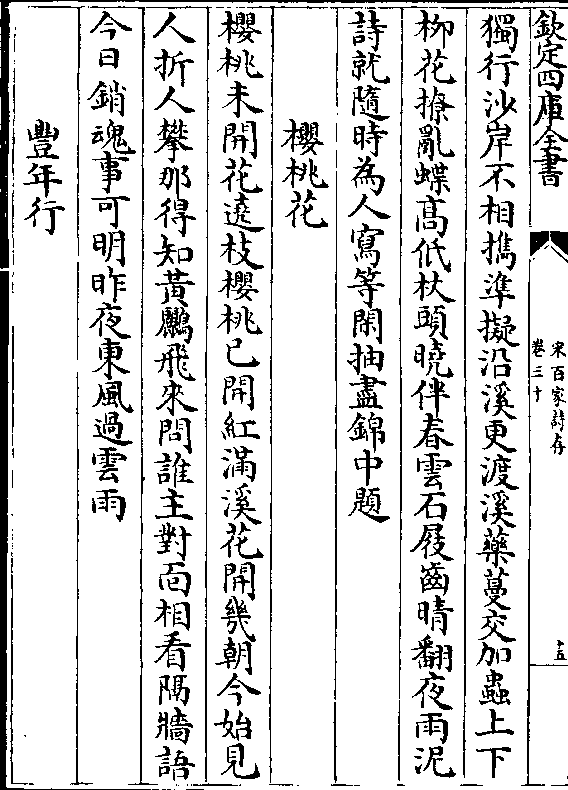 欽定四庫全書
宋百家詩存
卷三十
十五
獨行沙岸不相攜準擬沿溪更渡溪藥蔓交加蟲上下
柳花撩亂蝶高低杖頭曉伴春雲石屐齒晴翻夜雨泥
詩就隨時為人寫等閑抽盡錦中題
櫻桃花
櫻桃未開花遶枝櫻桃已開紅滿溪花開幾朝今始見
人折人攀那得知黃鸝飛來問誰主對面相看隔牆語
今日銷魂事可明昨夜東風過雲雨
豐年行